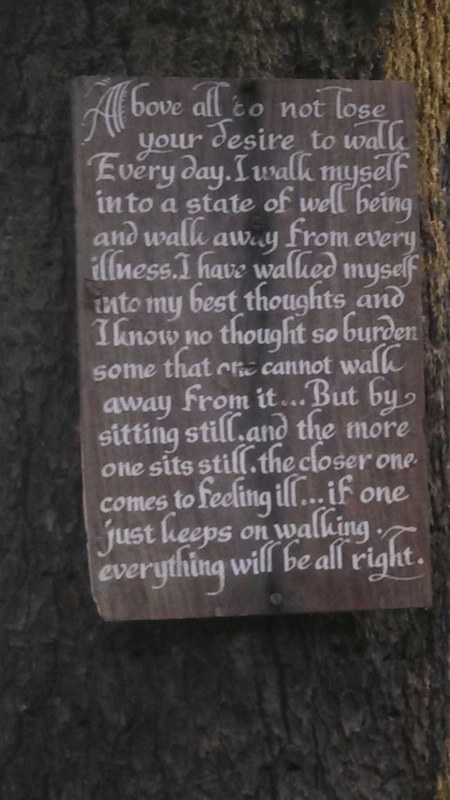 Above all do not lose
your desire to walk
Every day. I walk myself
into a state of well being
and walk away from every
illness. I have walked myself
into my best thoughts and
I know no thought so burden
some that one cannot walk
away from it... But by
sitting still. and the more
one sits still. the closer one
comes to feeling ill... if one
just keeps on walking.
everything will be all right.